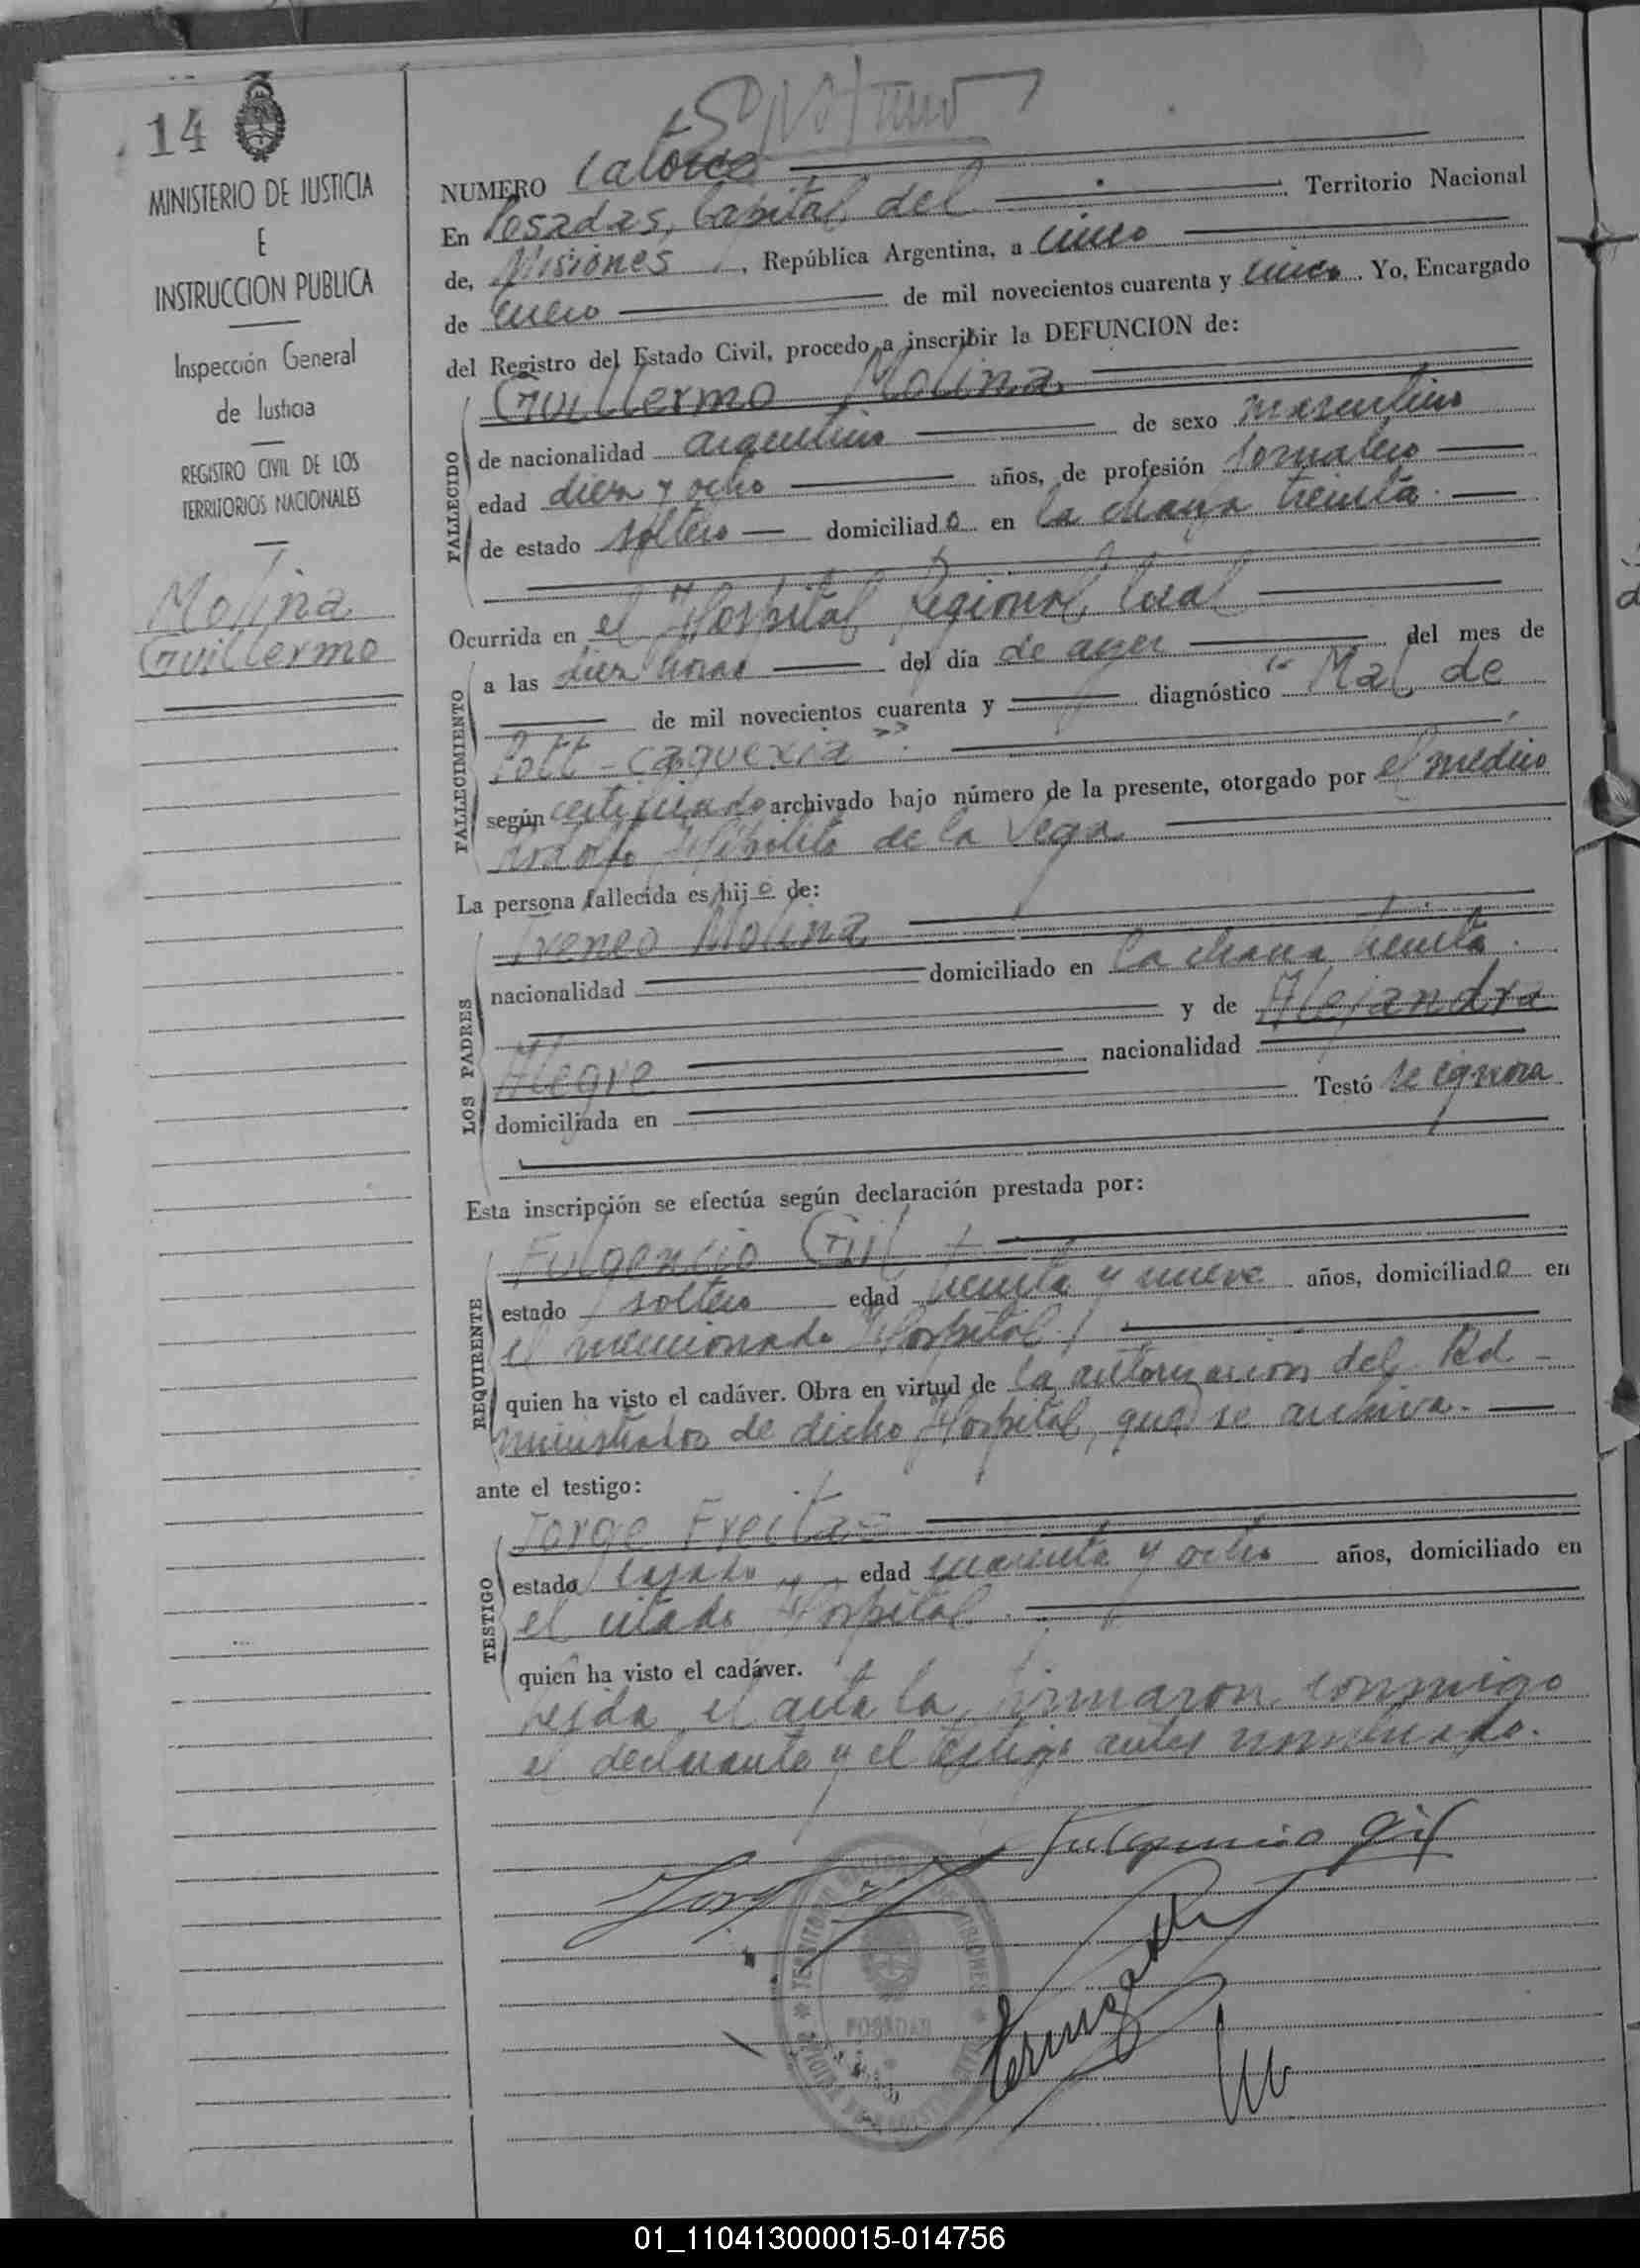 14
MINISTERIO DE JUSTICIA
E
INSTRUCCION PUBLICA
Inspección General
de Justicia
REGISTRO CIVIL DE LOS
TERRITORIOS NACIONALES
Molina
Guillermo
NUMERO Catorce
En Posadas, Capital del Territorio Nacional
de, Misiones, República Argentina, a cinco
de Enero de mil novecientos cuarenta y cinco. Yo, Encargado
del Registro del Estado Civil, procedo a inscribir la DEFUNCION de:
Guillermo Molina
FALLECIDO
de nacionalidad argentino de sexo masculino
edad diez y ocho años, de profesión Jornalero
de estado soltero domiciliado en la chacra treinta
Ocurrida en el Hospital Regional local
FALLECIMIENTO
a las diez horas del día de ayer del mes de
de mil novecientos cuarenta y diagnóstico "Mal de
Pott - caquexia".
según certificado archivado bajo número de la presente, otorgado por el médico
Hipólito de la Vega
La persona fallecida es hijo de:
LOS PADRES
Ireneo Molina
nacionalidad domiciliado en la chacra treinta
y de Alejandra
Alegre nacionalidad
domiciliada en Testó se ignora
Esta inscripción se efectúa según declaración prestada por:
REQUIRENTE
Fulgencio Gil
estado soltero edad treinta y nueve años, domiciliado en
el mencionado Hospital
quien ha visto el cadáver. Obra en virtud de la autorización del Ad-
ministrador de dicho Hospital, que se archiva.
ante el testigo:
TESTIGO
Jorge Freitas
estado casado edad cuarenta y ocho años, domiciliado en
el citado Hospital.
quien ha visto el cadáver.
Leída el acta la firmaron conmigo
el declarante y el testigo antes nombrado.
Fulgencio Gil
POSADAS
01_110413000015-014756